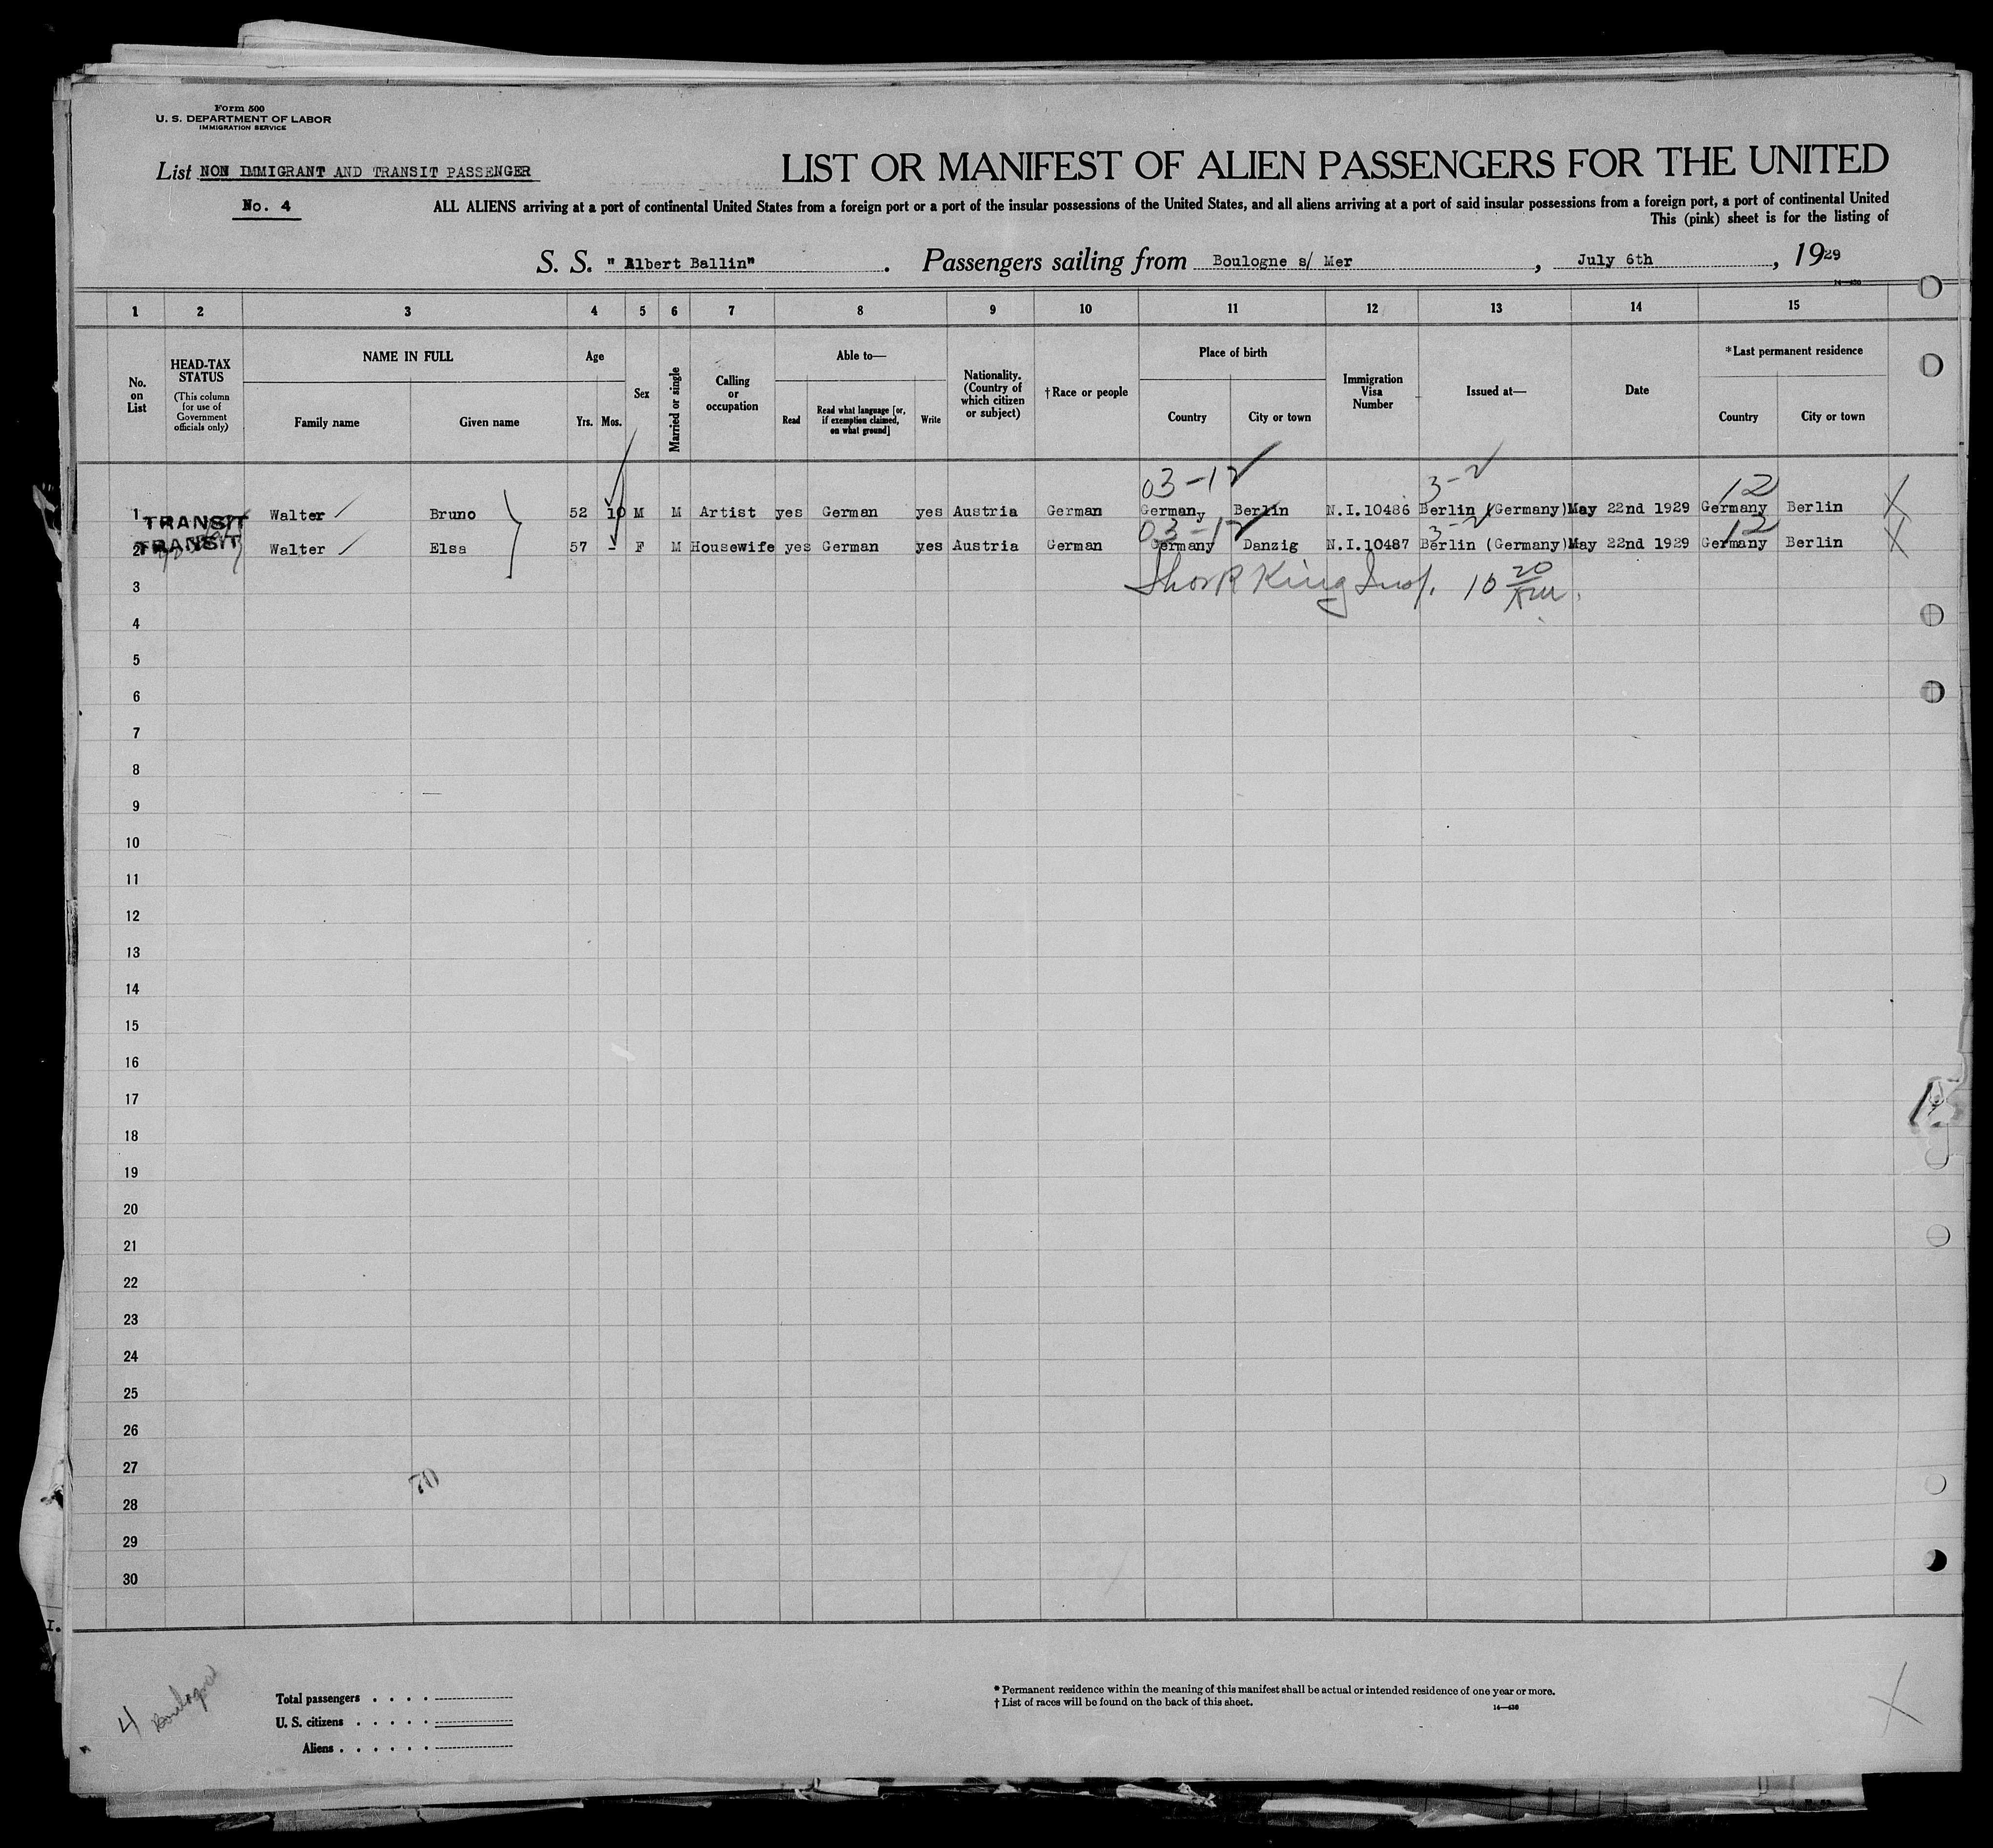 Form 500
U. S. DEPARTMENT OF LABOR
IMMIGRATION SERVICE
List NON IMMIGRANT AND TRANSIT PASSENGER
No. 4
LIST OR MANIFEST OF ALIEN PASSENGERS FOR THE UNITED
ALL ALIENS arriving at a port of continental United States from a foreign port or a port of the insular possessions of the United States, and all aliens arriving at a port of said insular possessions from a foreign port, a port of continental United
This (pink) sheet is for the listing of
S. S. "Albert Ballin". Passengers sailing from Boulogne s/ Mer, July 6th, 1929
14—430
1 2 3 4 5 6 7 8 9 10 11 12 13 14 15
No. on List
HEAD-TAX STATUS (This column for use of Government officials only)
NAME IN FULL
Family name
Given name
Age
Yrs. Mos.
Sex
Married or single
Calling or occupation
Able to—
Read
Read what language [or, if exemption claimed, on what ground]
Write
Nationality. (Country of which citizen or subject)
†Race or people
Place of birth
Country
City or town
Immigration Visa Number
Issued at—
Date
*Last permanent residence
Country
City or town
03-12 3-2 12
1 TRANSIT Walter Bruno 52 10 M M Artist yes German yes Austria German Germany Berlin N.I.10486 Berlin (Germany) May 22nd 1929 Germany Berlin X
03-12 3-2 12
2 TRANSIT Walter Elsa 57 - F M Housewife yes German yes Austria German Germany Danzig N.I.10487 Berlin (Germany) May 22nd 1929 Germany Berlin X
3 King Insp. 10 20
4
5
6
7
8
9
10
11
12
13
14
15
16
17
18
19
20
21
22
23
24
25
26
27
70
28
29
30
I.
4 Boulogne
Total passengers . . . .
U. S. citizens . . . . .
Aliens . . . . . .
* Permanent residence within the meaning of this manifest shall be actual or intended residence of one year or more.
† List of races will be found on the back of this sheet.
14—430
X